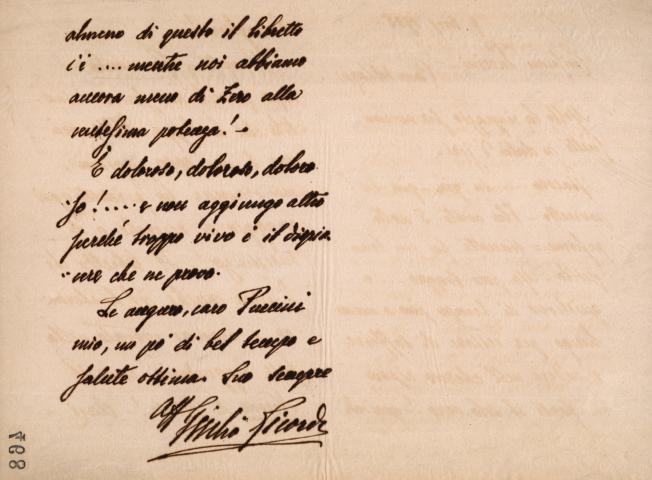 almeno di questo il libretto
c'è .... mentre noi abbiamo
ancora meno di Zero alla
ventesima potenza! -
È doloroso, doloroso, doloro
so! .... e non aggiungo altro
perché troppo vivo è il dispia
cere che ne provo.
Le auguro, caro Puccini
mio, un po' di bel tempo e
salute ottima. Suo sempre
Aff
Giulio Ricordi
498